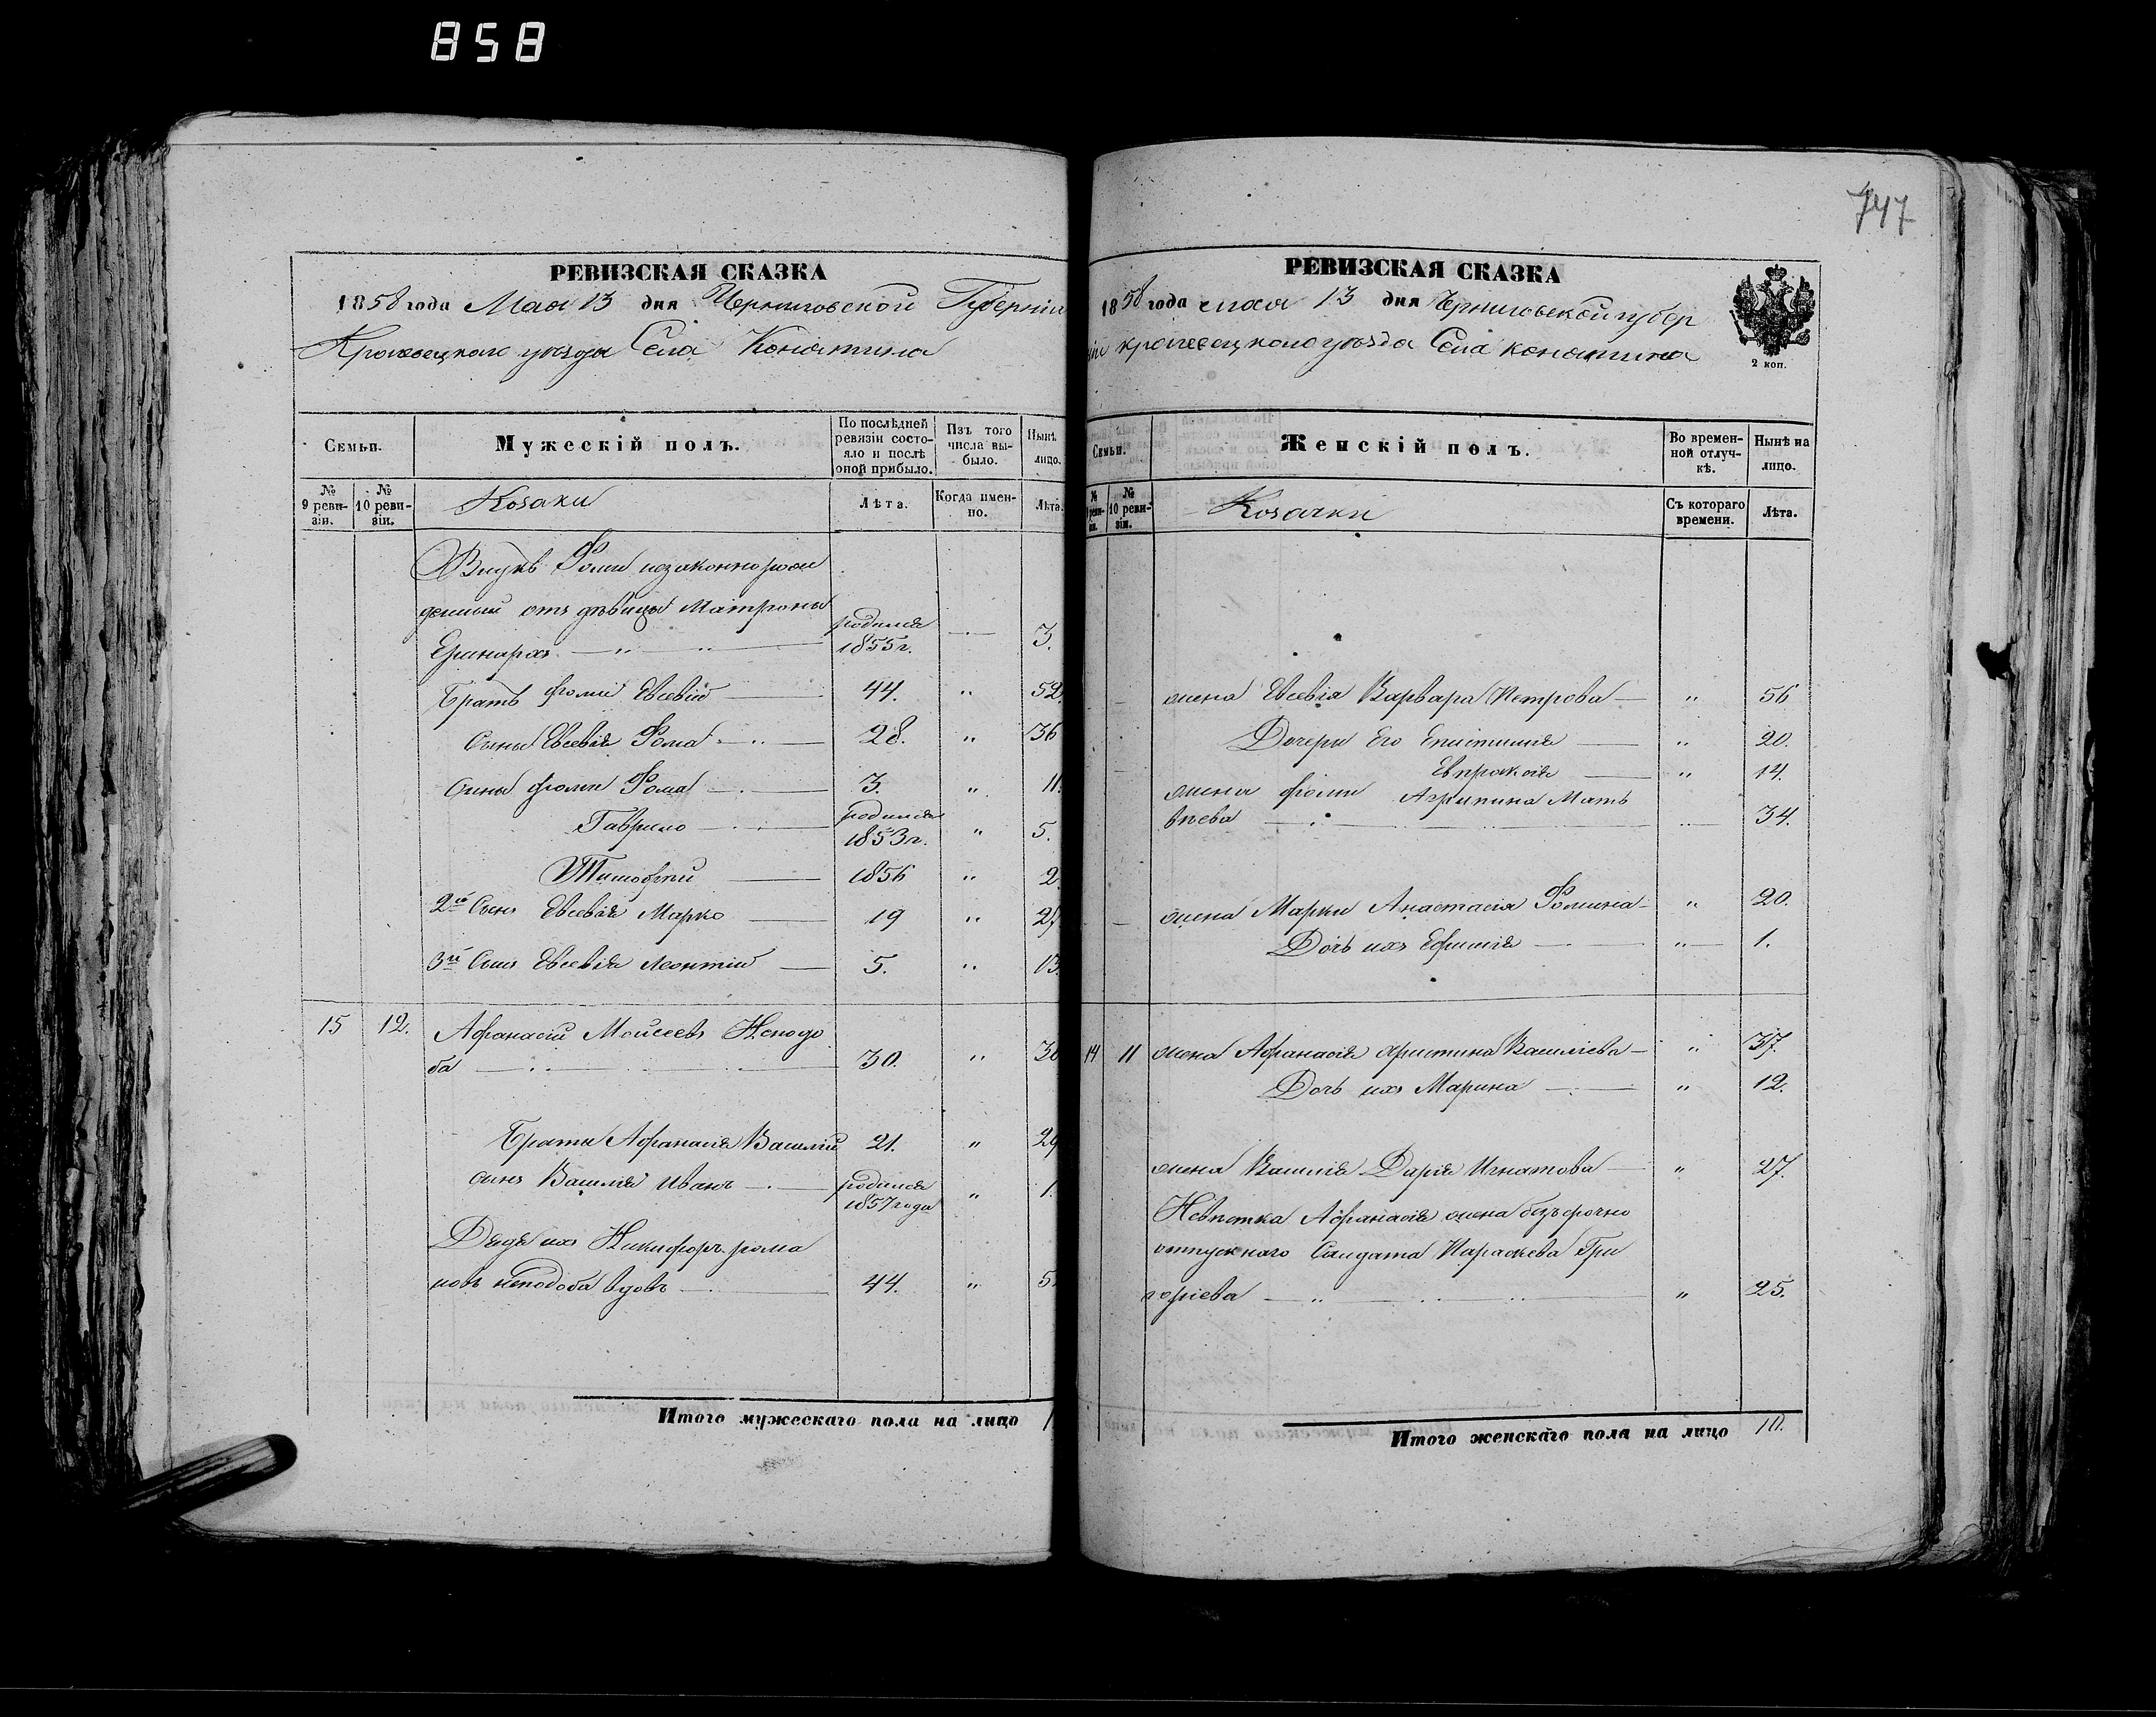 858
РЕВИЗСКАЯ СКАЗКА
1858 года Мая 13 дня Черниговской Губерніи
Кролевецкаго уѣзда Села Конятина
Семьи.
Мужескій полъ.
По послѣдней ревизіи состояло и послѣ оной прибыло.
Изъ того числа выбыло.
Нынѣ лицо.
№ 9 ревизіи.
№ 10 ревизіи.
Козаки
Лѣта.
Когда именно.
Лѣта.
Внукъ Фомы незаконнорож
денный отъ дѣвицы Матроны
Еринархъ родился 1855 г. 3.
Братъ Фомы Евсевій 44. " 52
Сыны Евсевія Фома 28. " 36
Сыны Фомы Фома 3. " 11.
Гаврило родился 1853 г. " 5.
Тимофей 1856 " 2
2й Сынъ Евсевія Марко 19 " 27
3й Сынъ Евсевія Леонтій 5. " 13.
15 12. Афанасій Моисеевъ Неподо
ба 30. " 3
Браты Афанасія Василій 21. " 29
сынъ Василія Иванъ родился 1857 года " 1.
Дядя ихъ Никифоръ Рома
новъ Неподоба вдовъ 44. " 5
Итого мужескаго пола на лицо 1
747
РЕВИЗСКАЯ СКАЗКА
1858 года мая 13 дня Черниговской губер
ніи кролевецкаго уѣзда Села конятина
2 коп.
Семьи.
Женскій полъ.
Во временной отлучкѣ.
Нынѣ на лицо.
№ 9 ревизіи.
№ 10 ревизіи.
Козачки
Съ котораго времени.
Лѣта.
жена Евсевія Варвара Петрова " 56
Дочери Его Епистимия " 20.
Евпраксія " 14.
жена Фомы Агрипина Мать
вѣева 34.
жена Марки Анастасія Фомина " 20.
Дочь ихъ Ефимия " 1.
14 11 жена Афанасія Христина Василіева " 37.
Дочь ихъ Марина " 12.
жена Василія Дарія Игнатова " 27.
Невѣстка Афанасія жена безсрочно
отпускнаго Солдата Параскева Гри
горіева " 25.
Итого женскаго пола на лицо 10.